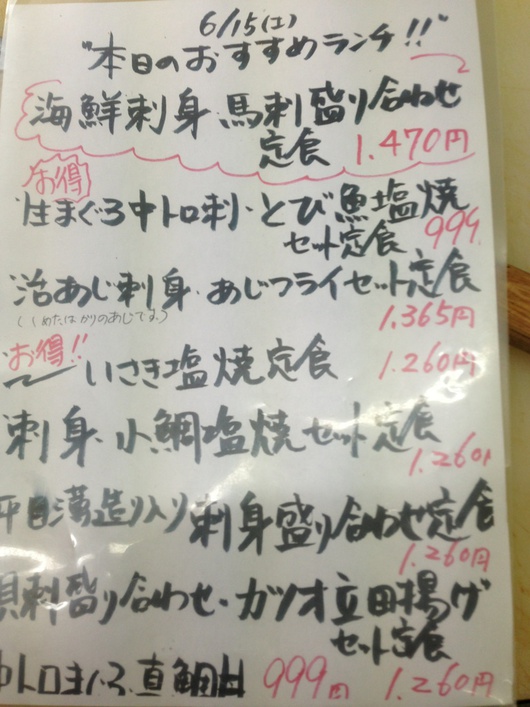 6/15(土)
"本日のおすすめランチ!!"
海鮮刺身 馬刺盛り合わせ
定食 1.470円
お得
生まぐろ中トロ刺・とび魚塩焼
セット定食 999
活あじ刺身・あじフライセット定食
(しめたばかりのあじです。) 1.365円
お得!!
いさき塩焼定食 1.260円
刺身・小鯛塩焼セット定食
1.260円
平目薄造り入り刺身盛り合わせ定食
1.260円
貝刺盛り合わせ・カツオ立田揚げ
セット定食
中トロまぐろ・真鯛丼 999円 1.260円